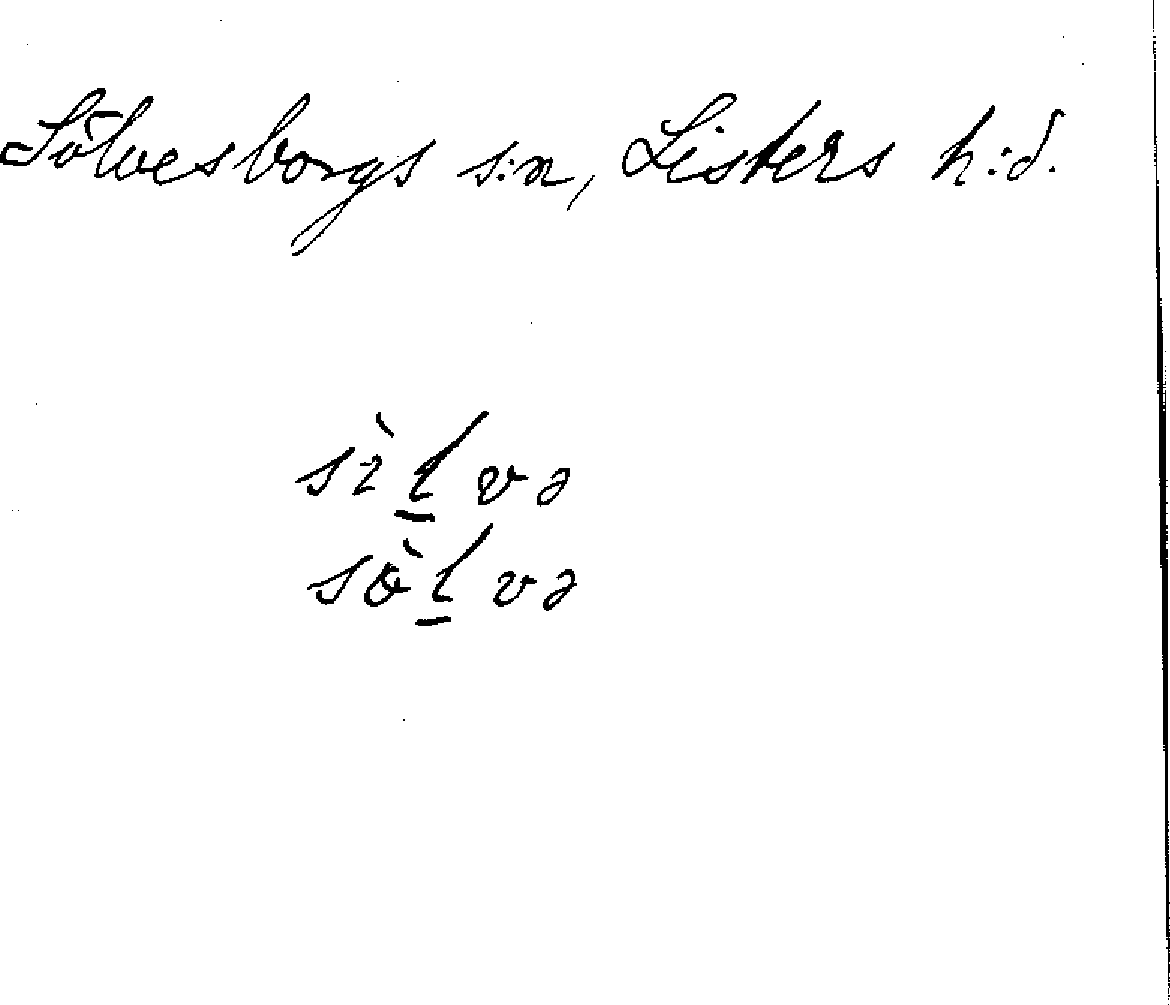 Sölvesborgs s:n, Listers h:d.
sìḻvə
sὸḻvə